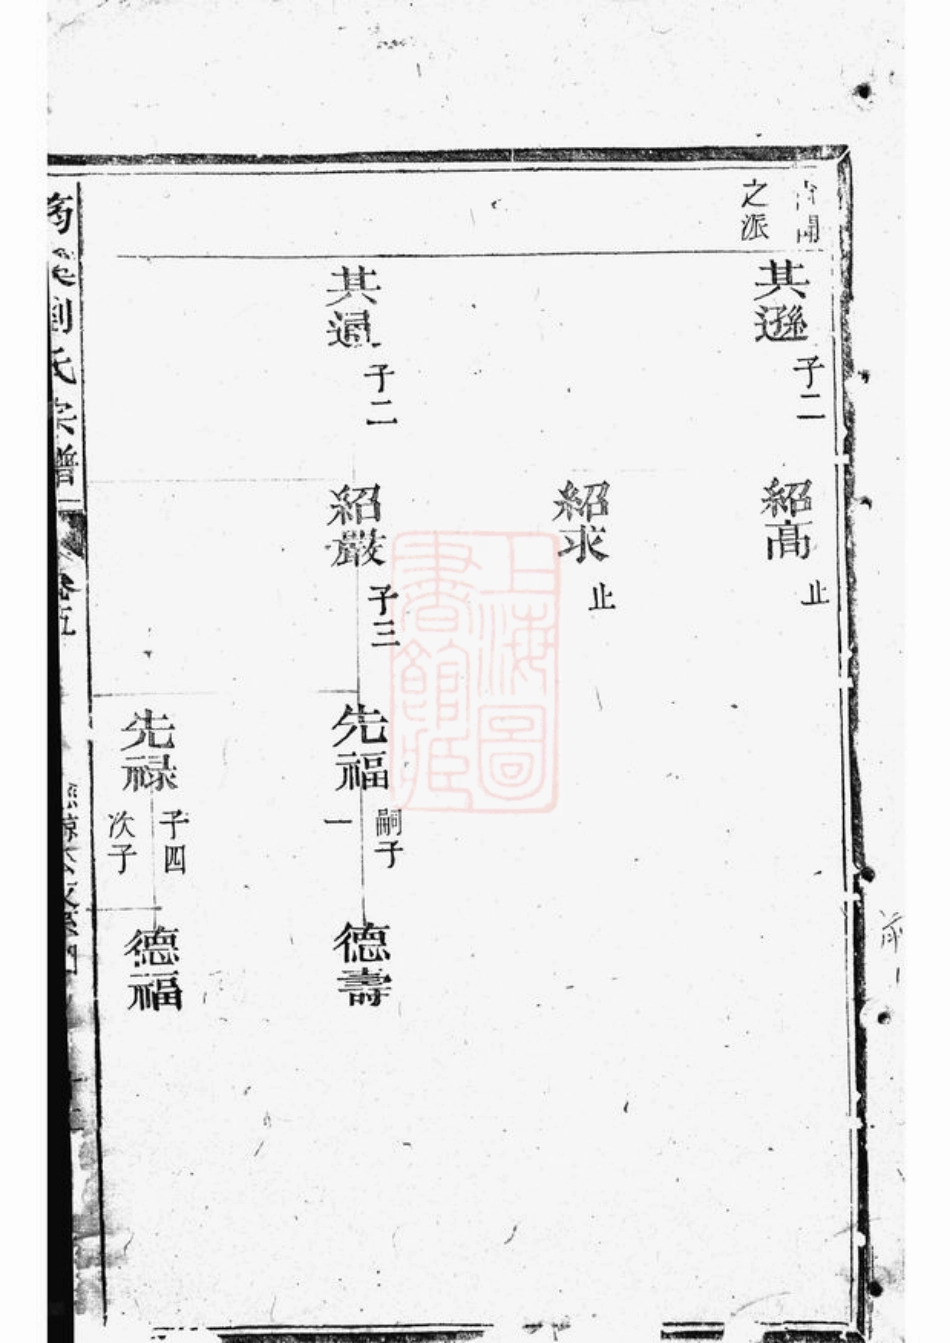 之派
其遜
子二
紹高
止
紹求
止
其過
子二
紹嚴
子三
先福
嗣子
一
德壽
先祿
子四
次子
德福
劉氏宗譜
卷五
上海圖
書館藏